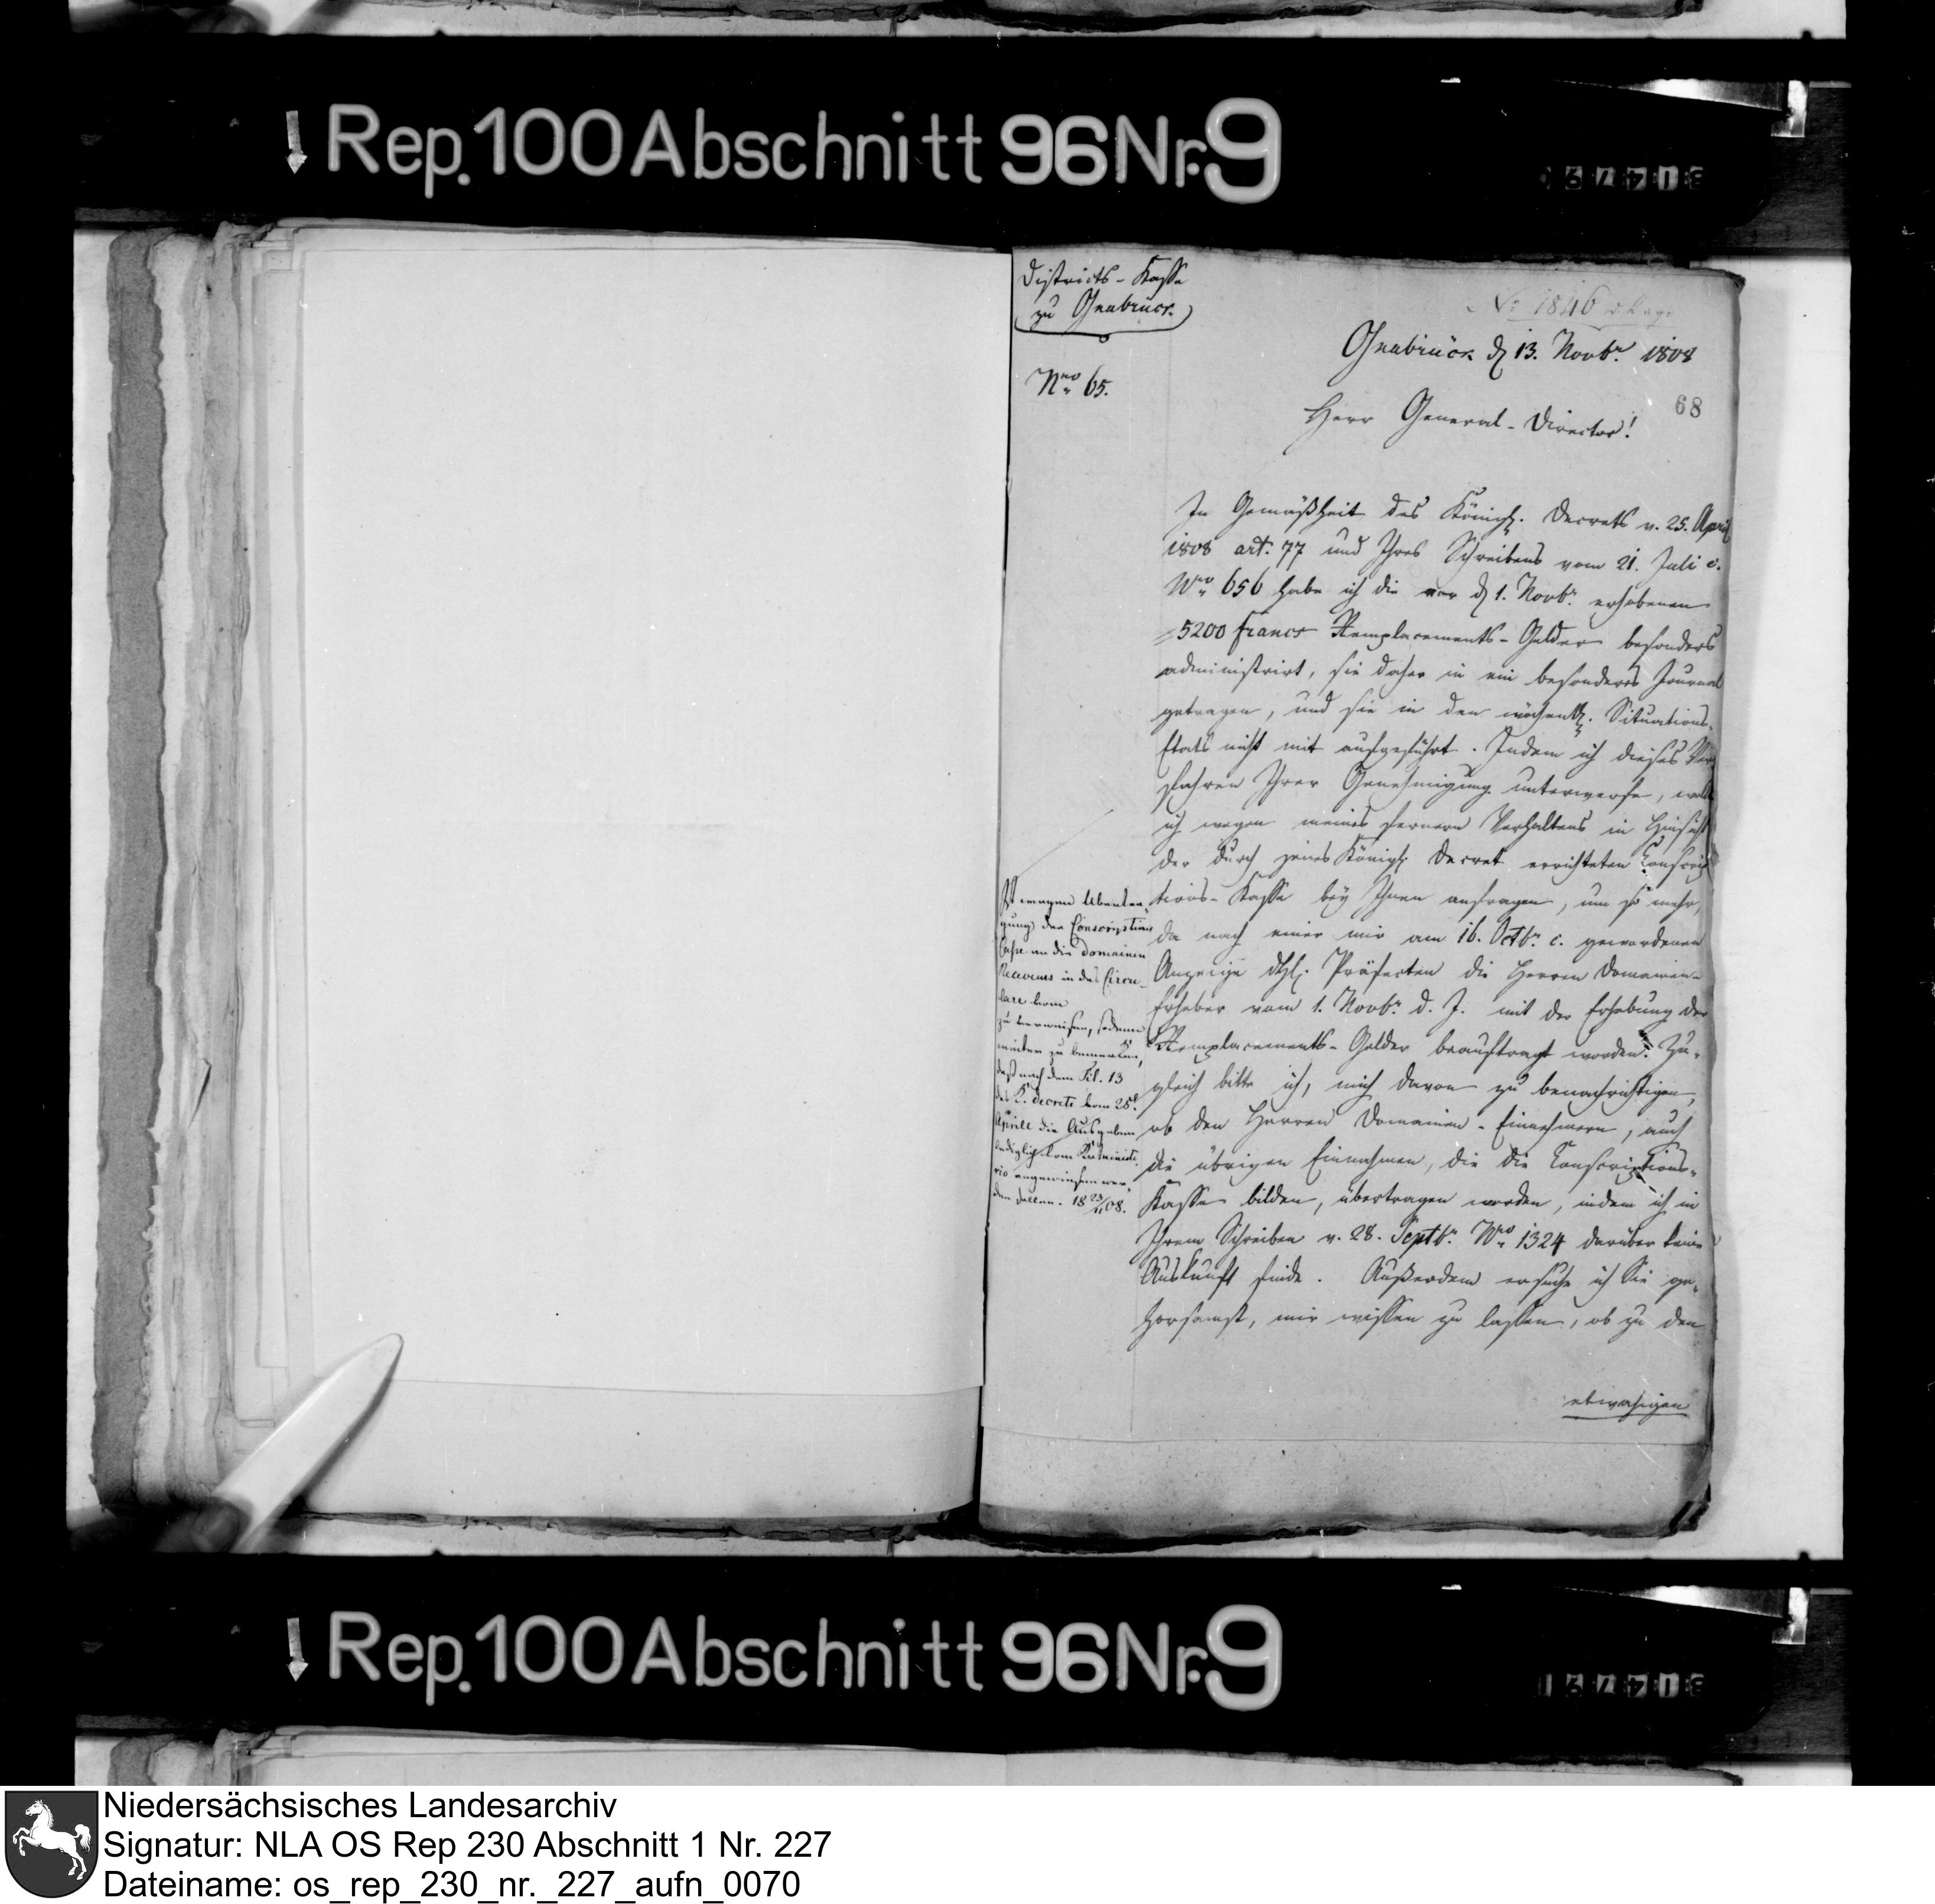 Rep. 100 Abschnitt 96 Nr. 9
Districts-Kasse
zu Osnabrück.
No 1846
Osnabrück d 13. Novbr. 1808
Nro 65.
68
Herr General-Director!
In Gemäßheit des Königl. Decrets v. 25. April
1808 art. 77 und Ihres Schreibens vom 21. Juli c.
Nro 656 habe ich die vor d 1. Novbr. erhobenen
5200 francs Remplacements-Gelder besonders
administrirt, sie daher in ein besonderes Journal
getragen, und sie in den wöchentl. Situations-
Etats nicht mit aufgeführt. Indem ich dieses Ver
fahren Ihrer Genehmigung unterwerfe, wollte
ich wegen meines fernern Verhaltens in Hinsicht
der durch jenes Königl. Decret errichteten Conscrip
tions-Kasse bey Ihnen anfragen, um so mehr,
da nach einer mir am 16. Octbr. c. gewordenen
Anzeige des H. Präfecten die Herren Domainen-
Erheber vom 1. Novbr. d. J. mit der Erhebung der
Remplacements-Gelder beauftragt worden. Zu-
gleich bitte ich, mich davon zu benachrichtigen,
ob den Herren Domainen-Einnehmern, auch
die übrigen Einnahmen, die die Conscriptions-
Kasse bilden, übertragen worden, indem ich in
Ihrem Schreiben v. 28. Septbr. Nro 1324 darüber keine
Auskunft finde. Außerdem ersuche ich Sie ge-
horsamst, mir wissen zu lassen, ob zu den
etwahigen
Ist wegen Übertra-
gung der Conscriptions
Casse an die Domainen
Receveurs in das Circu-
lare vom
zu verweisen, sodann
weiter zu bemerken,
daß nach dem Tit. 13
des K. Decrets vom 25t
Aprill die Ausgaben
lediglich vom Kr. Ministe
rio angewiesen wer-
den sollen. 18 23/11 08.
Rep. 100 Abschnitt 96 Nr. 9
Niedersächsisches Landesarchiv
Signatur: NLA OS Rep 230 Abschnitt 1 Nr. 227
Dateiname: os_rep_230_nr._227_aufn_0070